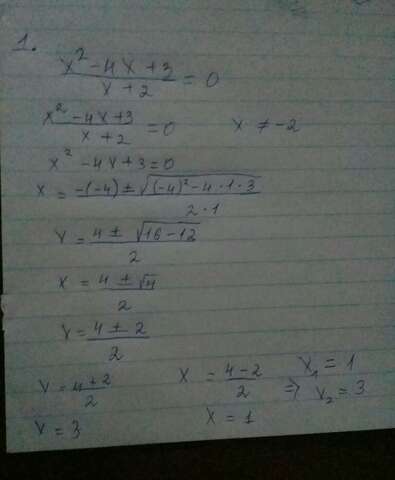 1.
x² - 4x + 3 / x + 2 = 0
x² - 4x + 3 / x + 2 = 0 x ≠ -2
x² - 4x + 3 = 0
x = -(-4) ± √(-4)² - 4 · 1 · 3 / 2 · 1
x = 4 ± √16 - 12 / 2
x = 4 ± √4 / 2
x = 4 ± 2 / 2
x = 4 + 2 / 2 x = 4 - 2 / 2 ⇒ x₁ = 1
x = 3 x = 1 x₂ = 3